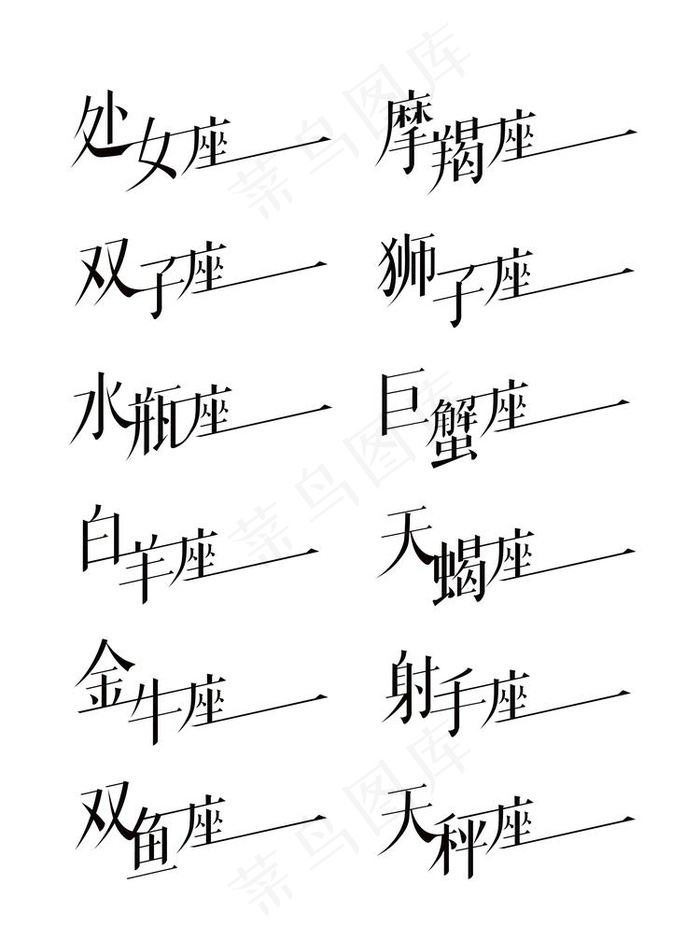 处女座 摩羯座
双子座 狮子座
水瓶座 巨蟹座
白羊座 天蝎座
金牛座 射手座
双鱼座 天秤座
菜鸟图库
菜鸟图库
菜鸟图库